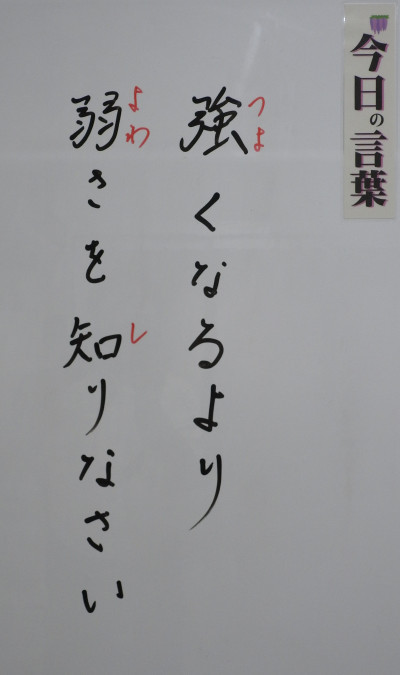 今日の言葉
強くなるより
つよ
弱さを知りなさい
よわ
し